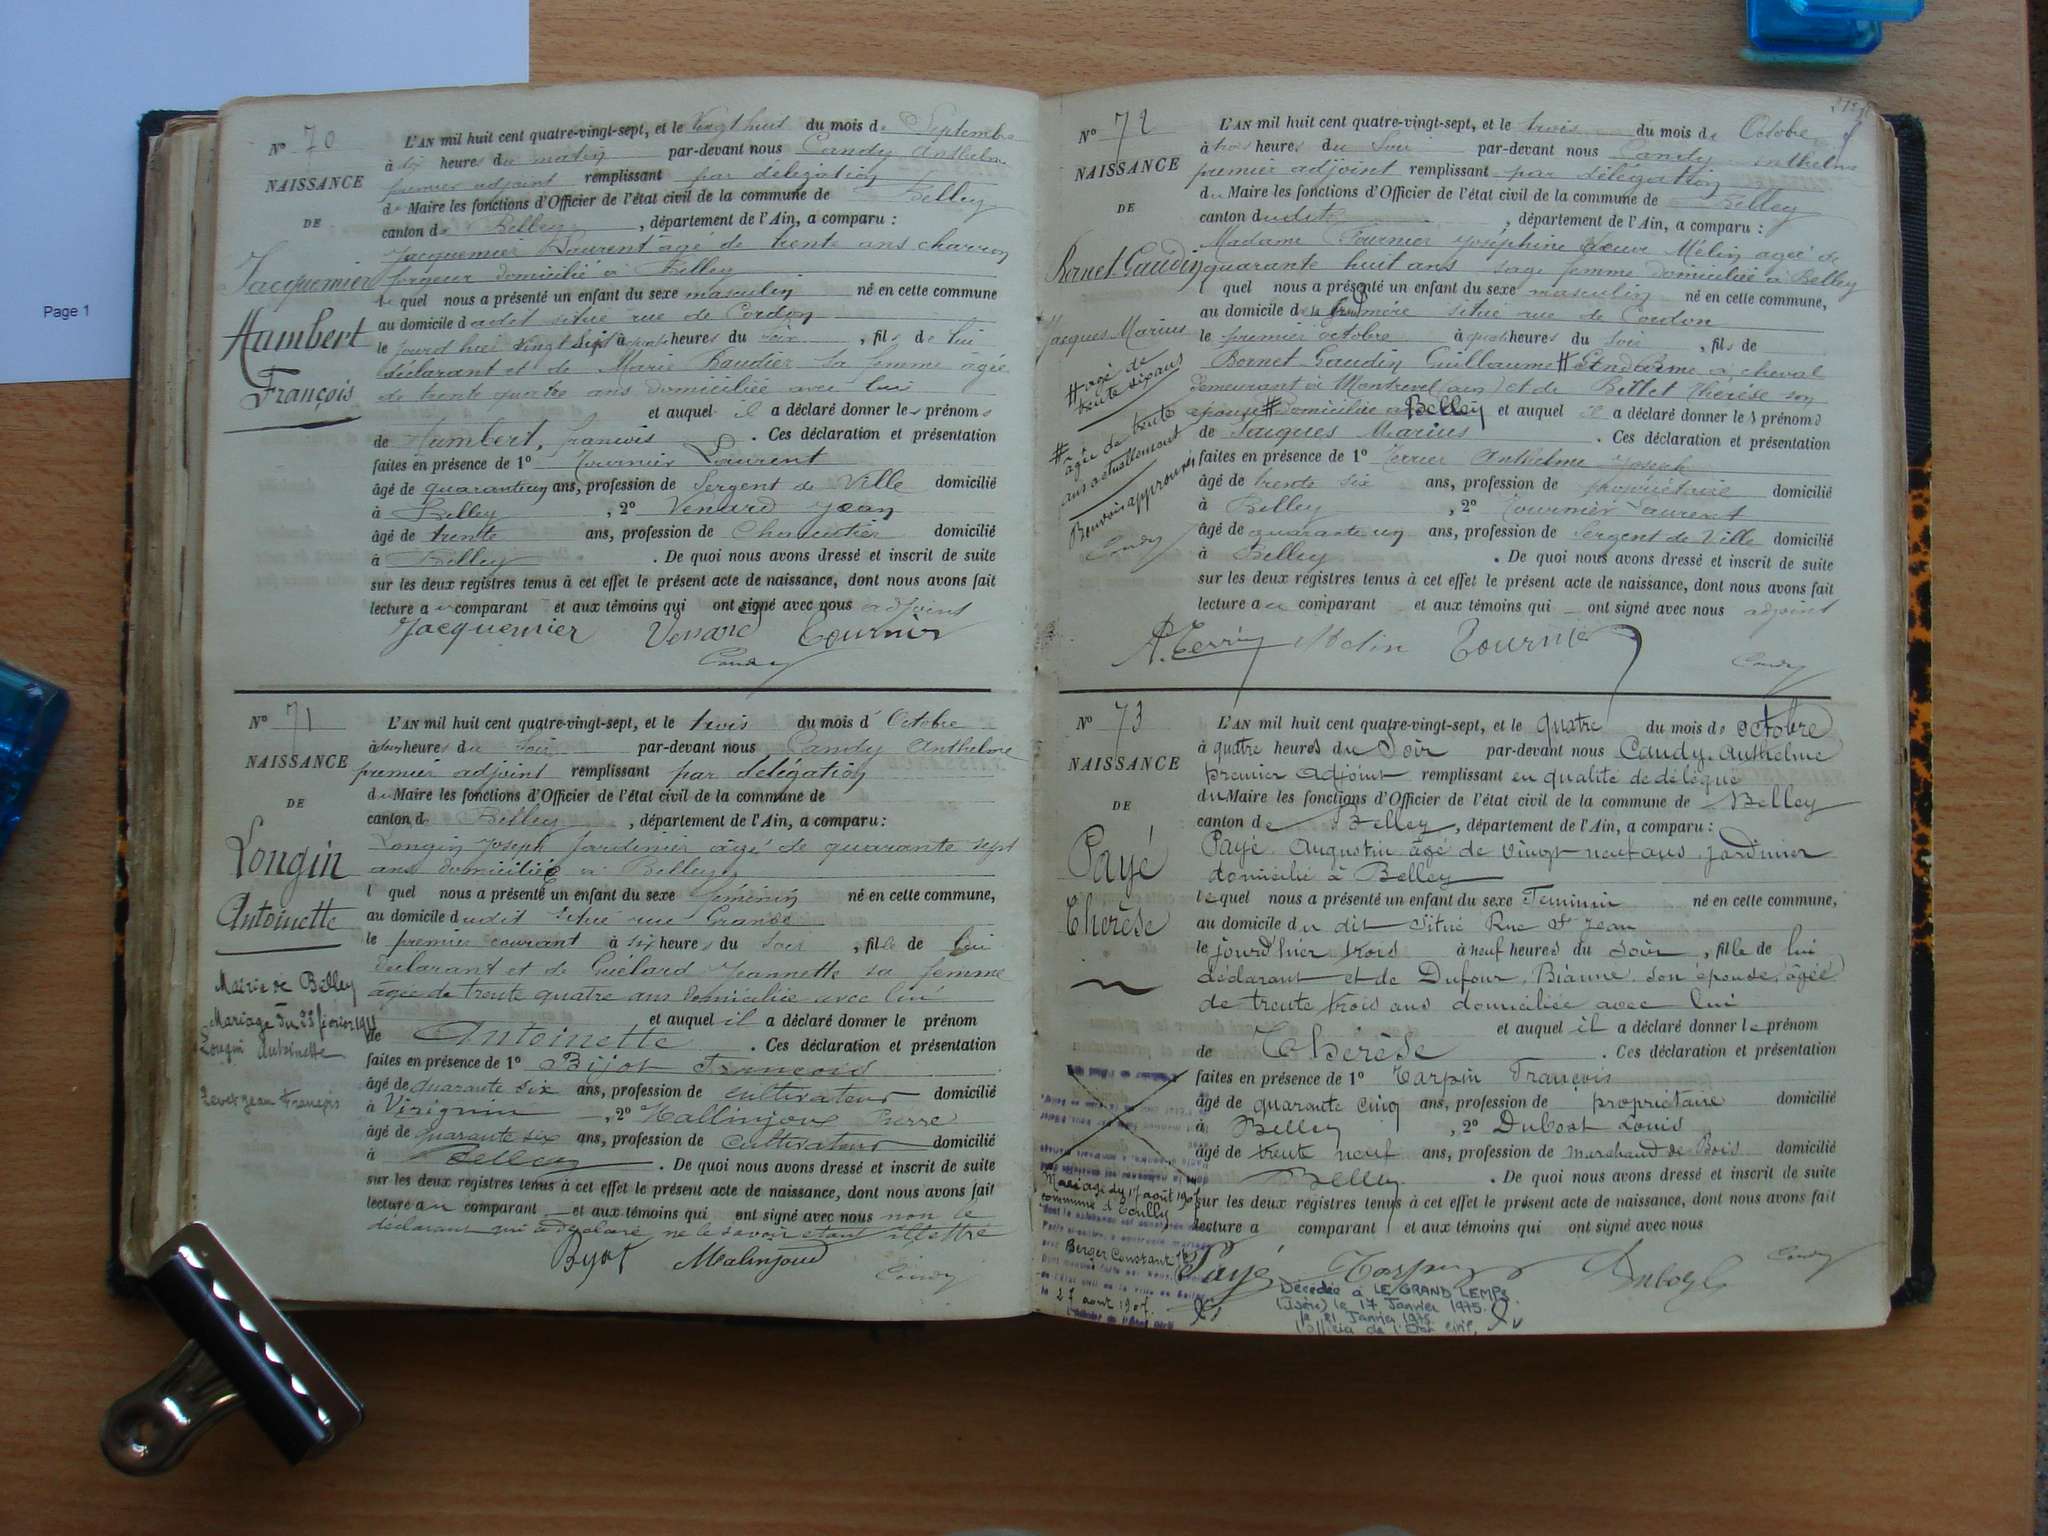 Page 1
N° 70
NAISSANCE
DE
Jacquemier
Humbert
François
L'AN mil huit cent quatre-vingt-sept, et le vingt huit du mois de Septembre
à dix heures du matin par-devant nous Candy Anthelme
premier adjoint remplissant par délégation
du Maire les fonctions d'Officier de l'état civil de la commune de Belley
canton de Belley, département de l'Ain, a comparu :
Jacquemier Laurent âgé de trente ans charron
forgeur domicilié à Belley
lequel nous a présenté un enfant du sexe masculin né en cette commune,
au domicile dudit situé rue de Cordon
le jourd'hui vingt à heures du soir, fils de lui
déclarant et de Marie Baudier sa femme âgée
de trente quatre ans domiciliée avec lui
et auquel il a déclaré donner les prénoms
de Humbert, françois. Ces déclaration et présentation
faites en présence de 1° Tournier Laurent
âgé de quarante un ans, profession de Sergent de Ville domicilié
à Belley, 2° Venard Jean
âgé de trente ans, profession de Charcutier domicilié
à Belley. De quoi nous avons dressé et inscrit de suite
sur les deux registres tenus à cet effet le présent acte de naissance, dont nous avons fait
lecture au comparant et aux témoins qui ont signé avec nous adjoint
Jacquemier Venard Tournier
Candy
N° 71
NAISSANCE
DE
Longin
Antoinette
Mairie de Belley
Mariage du 23 février 1911
Longin Antoinette
Jean François
L'AN mil huit cent quatre-vingt-sept, et le trois du mois d'Octobre
à deux heures du soir par-devant nous Candy Anthelme
premier adjoint remplissant par délégation
du Maire les fonctions d'Officier de l'état civil de la commune de
canton de Belley, département de l'Ain, a comparu :
Longin Joseph Jardinier âgé de quarante sept
ans domicilié à Belley
lequel nous a présenté un enfant du sexe féminin né en cette commune,
au domicile dudit situé rue Grande
le premier courant à six heures du soir, fille de lui
déclarant et de Guélard Jeannette sa femme
âgée de trente quatre ans domiciliée avec lui
et auquel il a déclaré donner le prénom
de Antoinette. Ces déclaration et présentation
faites en présence de 1° Bijot François
âgé de quarante six ans, profession de cultivateur domicilié
à Virignin, 2° Mallinjoux Pierre
âgé de quarante six ans, profession de Cultivateur domicilié
à Belley. De quoi nous avons dressé et inscrit de suite
sur les deux registres tenus à cet effet le présent acte de naissance, dont nous avons fait
lecture au comparant et aux témoins qui ont signé avec nous non le
déclarant qui a déclaré ne le savoir étant illettré
Byot Malinjoud
Candy
N° 72
NAISSANCE
DE
Bornet Gaudin
Jacques Marius
# agé de
trente six ans
# âgée de trente
ans actuellement
Renvois approuvés
Candy
L'AN mil huit cent quatre-vingt-sept, et le trois du mois de Octobre
à trois heures du Soir par-devant nous Candy Anthelme
premier adjoint remplissant par délégation
du Maire les fonctions d'Officier de l'état civil de la commune de Belley
canton dudit, département de l'Ain, a comparu :
Madame Fournier Joséphine veuve Mélin agée de
quarante huit ans sage femme domiciliée à Belley
lquel nous a présenté un enfant du sexe masculin né en cette commune,
au domicile de la Grd mère situé rue de Cordon
le premier octobre à quatre heures du soir, fils de
Bornet Gaudin Guillaume # Gendarme à cheval
demeurant à Montrevel (ain) et de Billet Thérèse son
épouse # domiciliée à Belley et auquel il a déclaré donner les prénoms
de Jacques Marius. Ces déclaration et présentation
faites en présence de 1° Terrier Anthelme Joseph
âgé de trente six ans, profession de propriétaire domicilié
à Belley, 2° Tournier Laurent
âgé de quarante un ans, profession de Sergent de Ville domicilié
à Belley. De quoi nous avons dressé et inscrit de suite
sur les deux registres tenus à cet effet le présent acte de naissance, dont nous avons fait
lecture au comparant et aux témoins qui ont signé avec nous adjoint
Melin Tournier
Candy
N° 73
NAISSANCE
DE
Payé
Thérèse
L'AN mil huit cent quatre-vingt-sept, et le quatre du mois de octobre
à quatre heures du Soir par-devant nous Candy Anthelme
premier adjoint remplissant en qualité de délégué
du Maire les fonctions d'Officier de l'état civil de la commune de Belley
canton de Belley, département de l'Ain, a comparu :
Payé Augustin âgé de vingt neuf ans, jardinier
domicilié à Belley
lequel nous a présenté un enfant du sexe Feminin né en cette commune,
au domicile du dit situé Rue St Jean
le jourd'hier trois à neuf heures du soir, fille de lui
déclarant et de Dufour, son épouse, âgée
de trente trois ans domiciliée avec lui
et auquel il a déclaré donner le prénom
de Thérèse. Ces déclaration et présentation
faites en présence de 1° Tarpin François
âgé de quarante cinq ans, profession de propriétaire domicilié
à Belley, 2° Louis
âgé de trente neuf ans, profession de Marchand de Bois domicilié
Belley. De quoi nous avons dressé et inscrit de suite
sur les deux registres tenus à cet effet le présent acte de naissance, dont nous avons fait
lecture a comparant et aux témoins qui ont signé avec nous
Mariage du 17 août 190
commune d'
avec Berger Constant
le 27 août 190
Payé Tarpin
Candy
Décédée à LE GRAND LEMPS
(Isère) le 17 Janvier 1975.
le 21 Janvier 1975
l'officier de l'Etat civil,